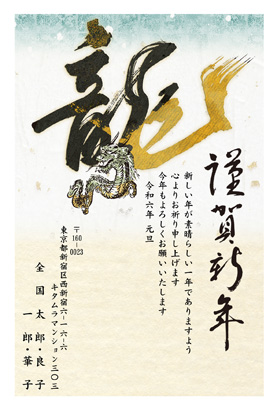 龍
謹賀新年
新しい年が素晴らしい一年でありますよう
心よりお祈り申し上げます
今年もよろしくお願いいたします
令和六年 元旦
〒160-0023
東京都新宿区西新宿六-一六-六
キタムラマンション三〇三
全国 太郎・良子
一郎・華子